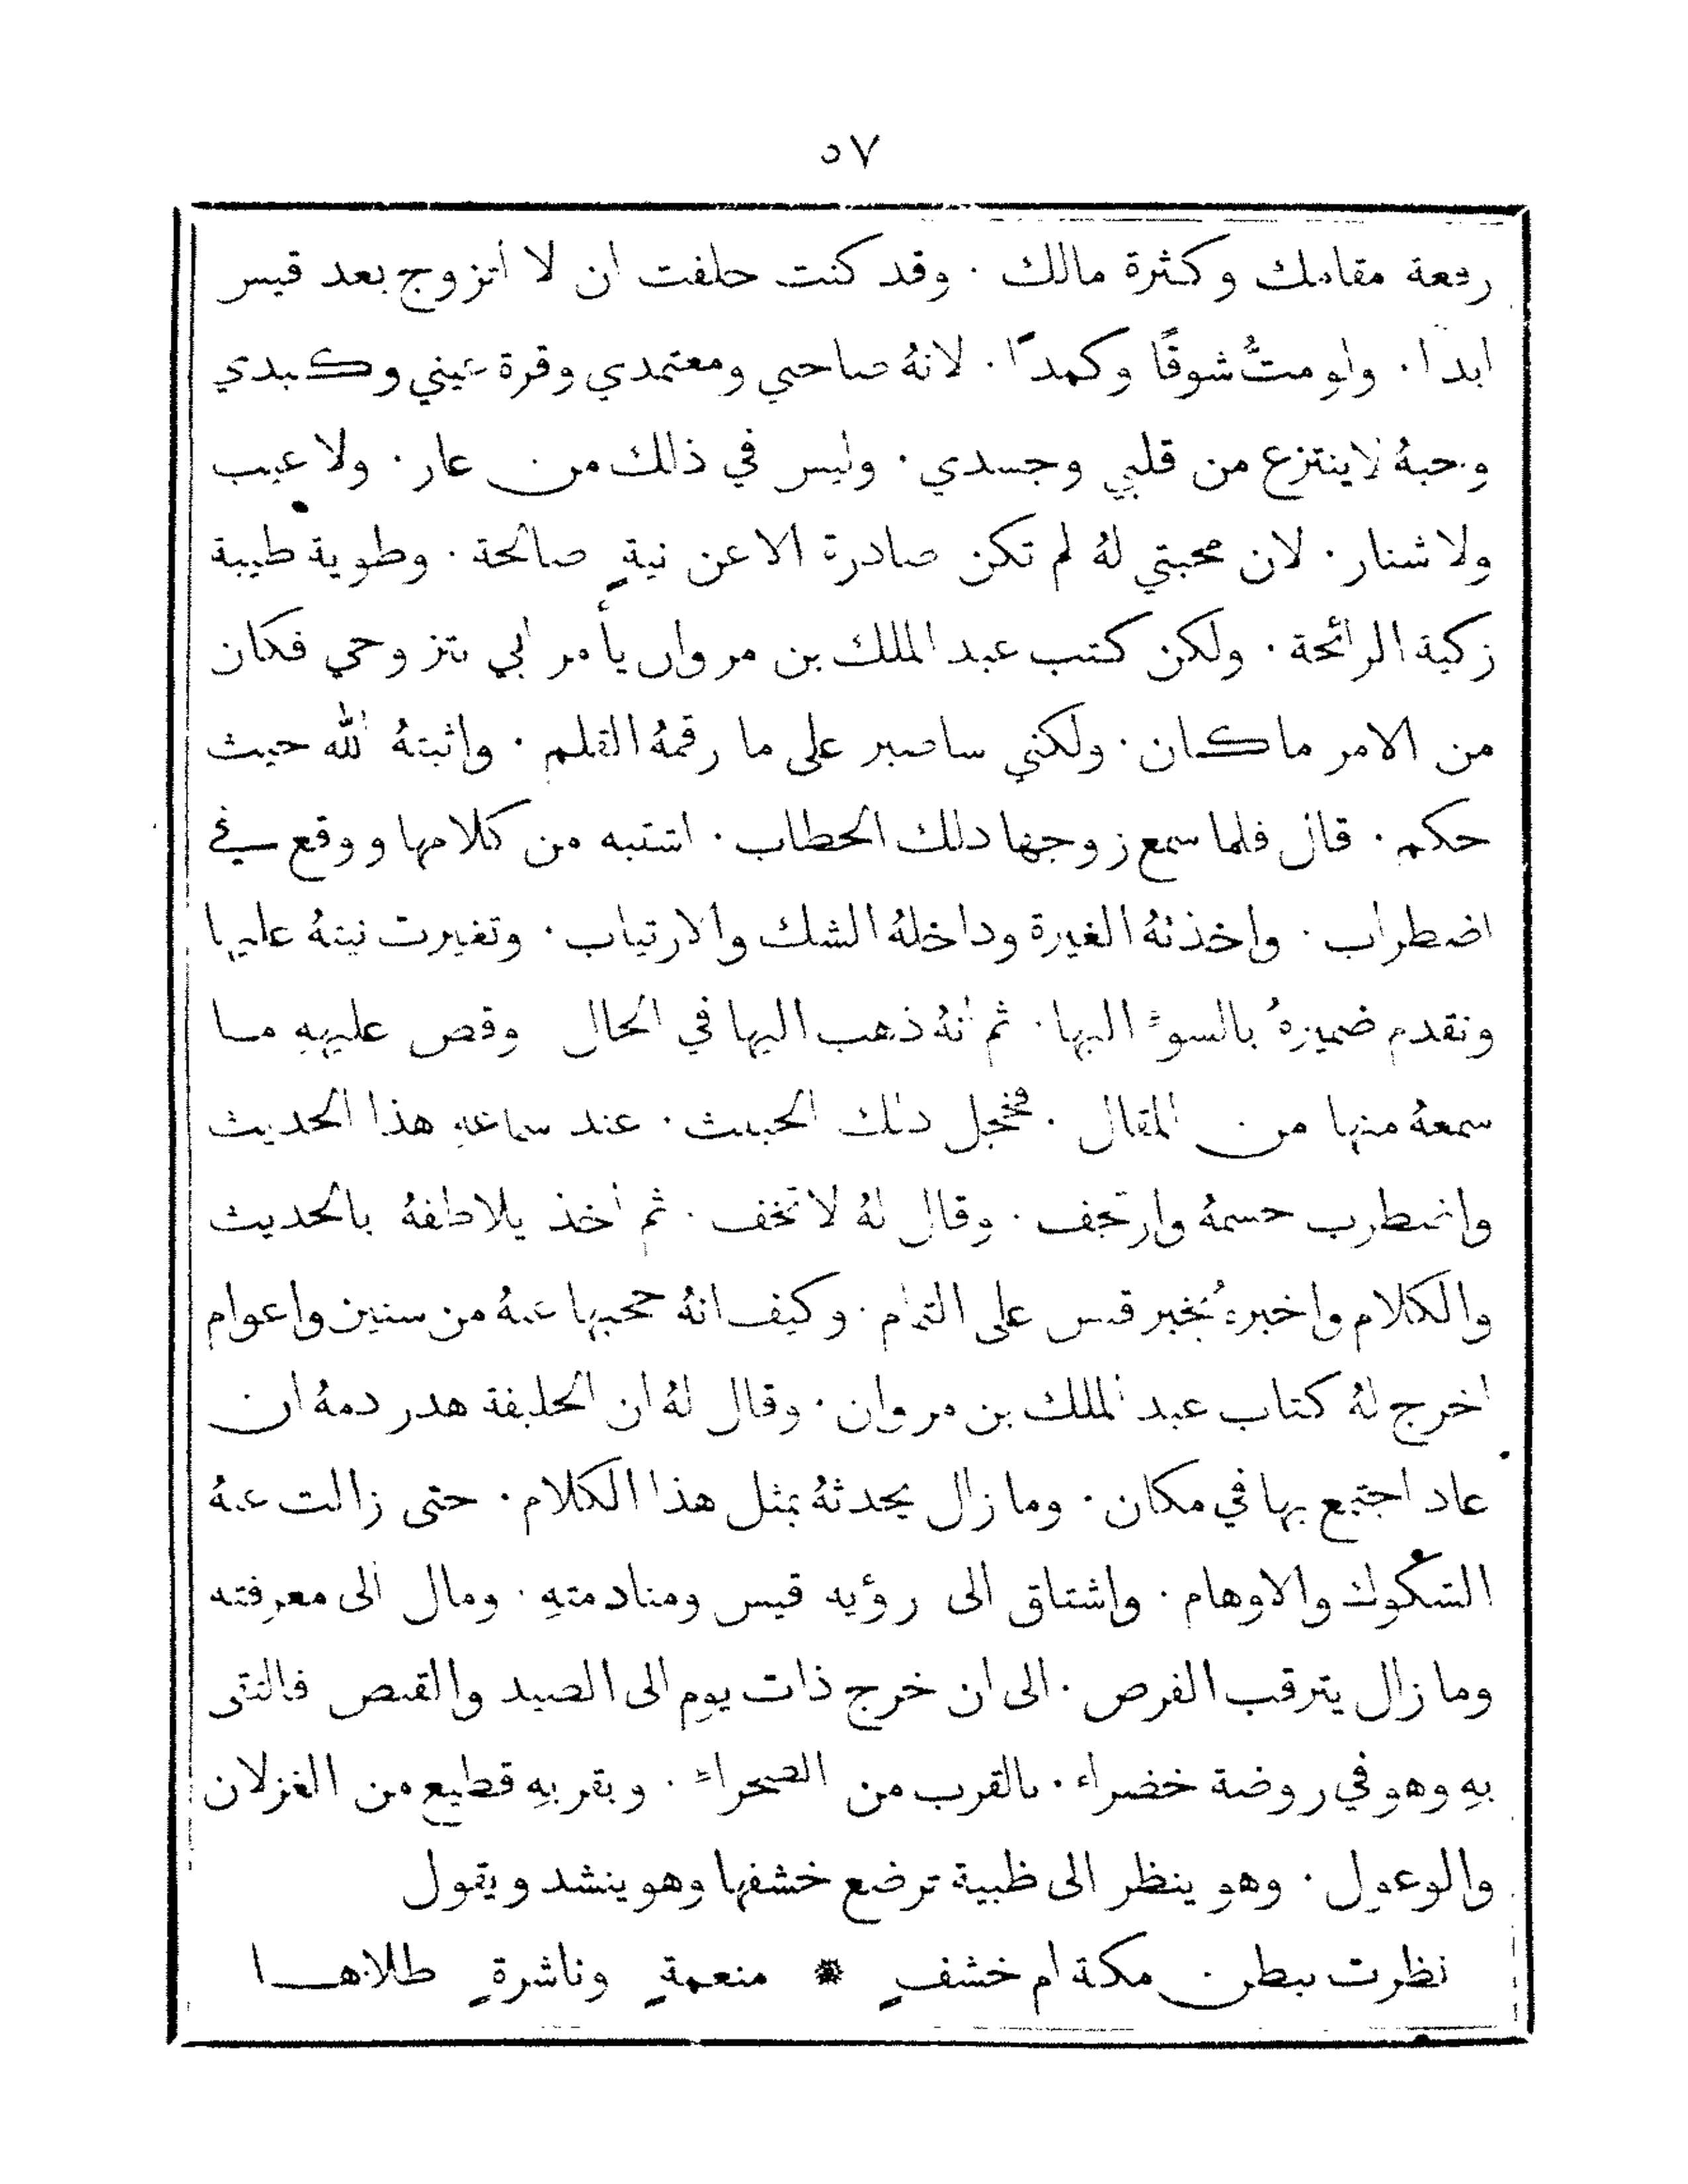 ٥٧
رفعة مقامك وكثرة مالك · وقد كنت حلفت ان لا اتزوج بعد قيس
ابدا · ولو متُّ شوقًا وكمدًا · لانهُ صاحبي ومعتمدي وقرة عيني وكبدي
وحبهُ لا ينتزع من قلبي وجسدي · وليس في ذلك من عار · ولا عيب
ولا شنار · لان محبتي لهُ لم تكن صادرة الا عن نيةٍ صالحة · وطوية طيبة
زكية الرائحة · ولكن كتب عبد الملك بن مروان يأمر ابي بتزوجي فكان
من الامر ما كان · ولكني ساصبر على ما رقمهُ القلم · واثبتهُ الله حيث
حكم · قال فلما سمع زوجها ذلك الخطاب · اشتبه من كلامها ووقع في
اضطراب · واخذتهُ الغيرة وداخلهُ الشك والارتياب · وتغيرت نيتهُ عليها
وتقدم ضميرهُ بالسوءِ اليها · ثم انهُ ذهب اليها في الحال وقص عليهِ ما
سمعهُ منها من المقال · فخجل ذلك الخبيث · عند سماعهِ هذا الحديث
واضطرب جسمهُ وارتجف · وقال لهُ لا تخف · ثم اخذ يلاطفهُ بالحديث
والكلام واخبرهُ بخبر قيس على التمام · وكيف انهُ حجبها عنهُ من سنين واعوام
اخرج لهُ كتاب عبد الملك بن مروان · وقال لهُ ان الخليفة هدر دمهُ ان
عاد اجتمع بها في مكان · وما زال يحدثهُ بمثل هذا الكلام · حتى زالت عنهُ
الشكوك والاوهام · واشتاق الى رؤيه قيس ومنادمتهِ · ومال الى معرفته
وما زال يترقب الفرص · الى ان خرج ذات يوم الى الصيد والقنص فالتقى
بهِ وهو في روضة خضراء · بالقرب من الصحراء · وبقربهِ قطيع من الغزلان
والوعول · وهو ينظر الى ظبية ترضع خشفها وهو ينشد ويقول
نظرت ببطن مكة ام خشفٍ * منعمةٍ وناشرةٍ طلاها